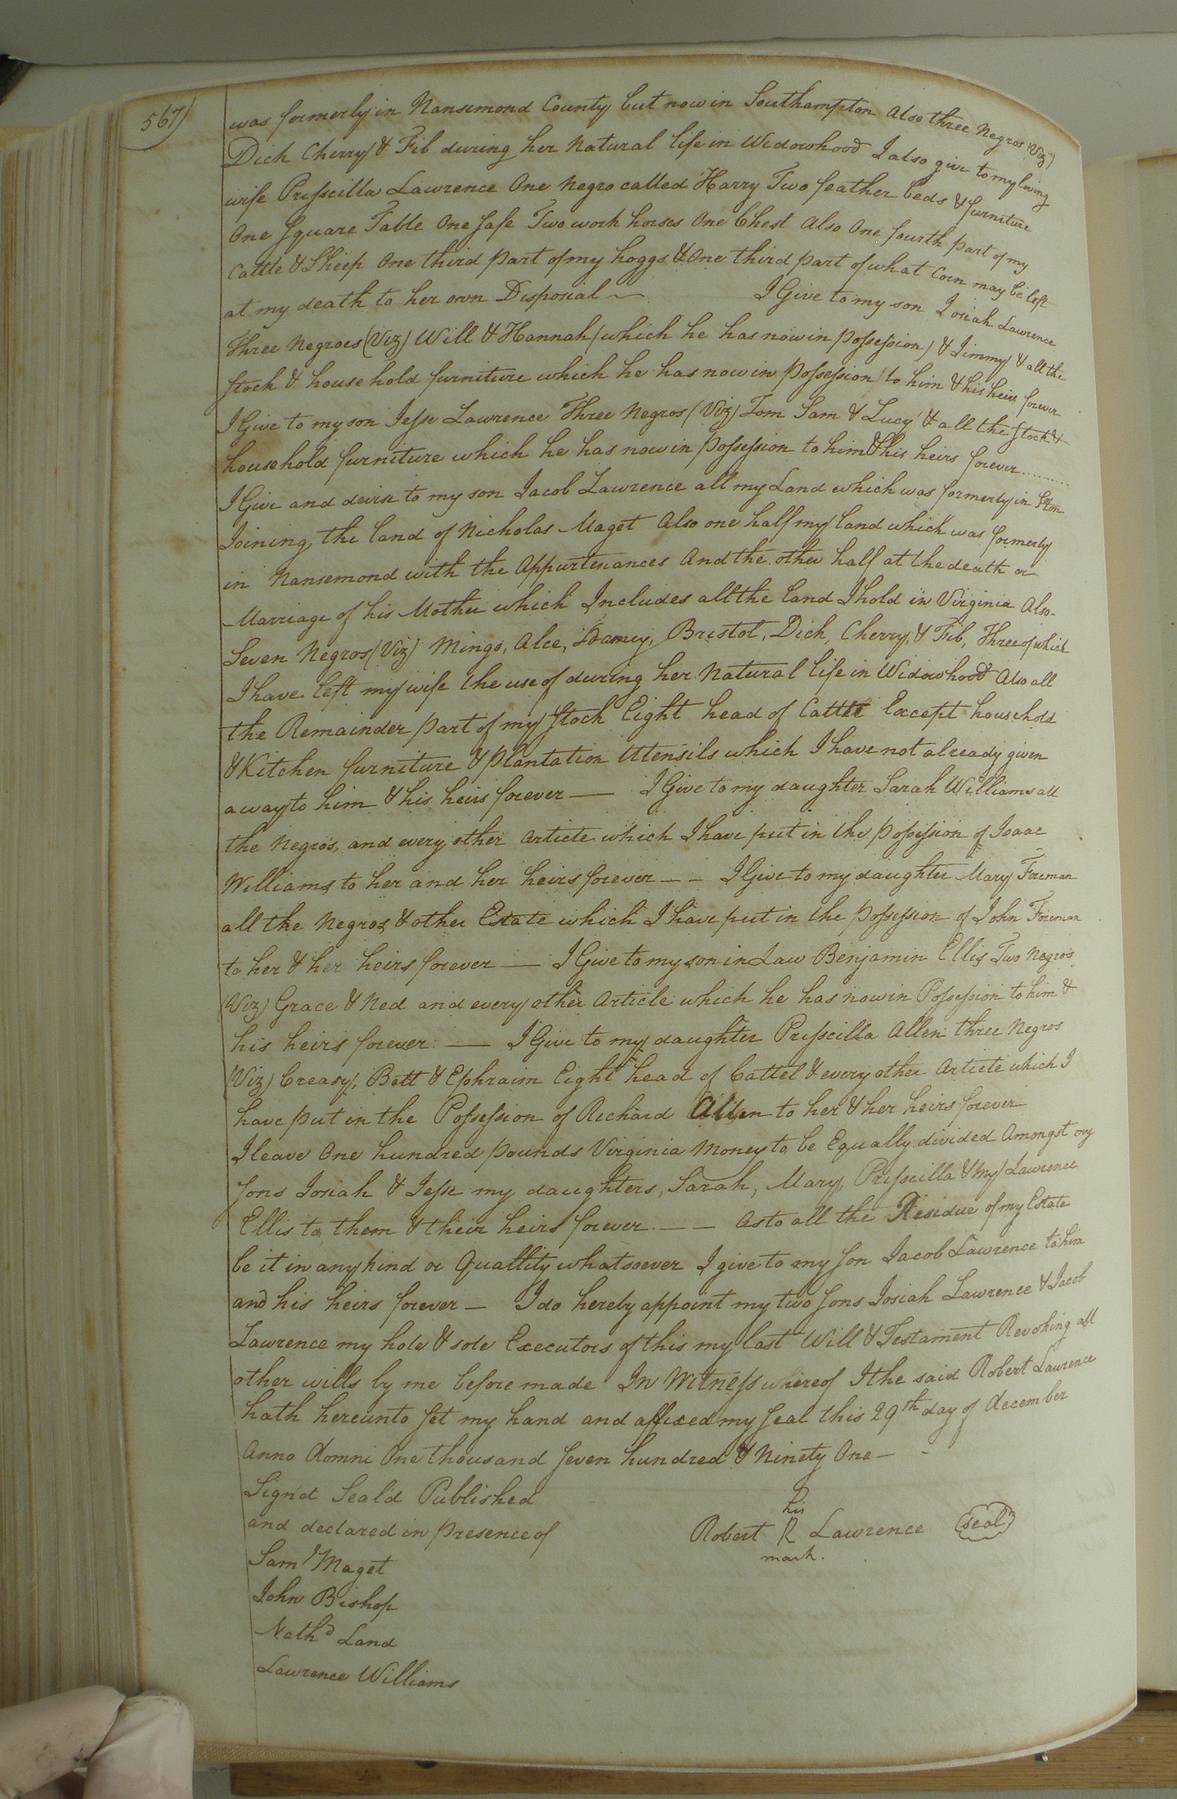 567)
was formerly in Nansemond County but now in Southampton Also three Negros (Viz)
Dick Cherry & Fib during her Natural life in Widowhood I also give to my loving
wife Prisscilla Lawrence One Negro called Harry Two feather beds & furniture
One Square Table One Safe Two work horses One Chest Also One fourth part of my
Cattle & Sheep One third part of my hoggs & One third part of what Corn may be left
at my death to her own Disposial ~ I Give to my son Josiah Lawrence
Three Negroes (Viz) Will & Hannah (which he has now in Possession) & Jimmy & all the
Stock & household furniture which he has now in Possession to him & his heirs forever
I Give to my son Jesse Lawrence Three Negros (Viz) Tom Sam & Lucy & all the Stock &
household furniture which he has now in Possession to him & his heirs forever........
I Give and devise to my son Jacob Lawrence all my Land which was formerly in
Joining the land of Nicholas Maget Also one half my land which was formerly
in Nansemond with the Appurtenances And the other half at the death or
Marriage of his Mother which Includes all the land I hold in Virginia Also
Seven Negros (Viz) Mingo, Alce, Bristol, Dick, Cherry, & Fib, Three of which
I have left my wife the use of during her Natural life in Widowhood Also all
the Remainder part of my Stock Eight head of Cattle Except household
& Kitchen furniture & Plantation Uttensils which I have not already given
away to him & his heirs forever — I Give to my daughter Sarah Williams all
the Negros, and every other Article which I have put in the Possession of Isaac
Williams to her and her heirs forever — — I Give to my daughter Mary Foreman
all the Negros & other Estate which I have put in the Possession of John Foreman
to her & her heirs forever — I Give to my son in Law Benjamin Ellis Two Negros
(Viz) Grace & Ned and every other Article which he has now in Possession to him &
his heirs forever — I Give to my daughter Prisscilla Allen three Negros
(Viz) Creasy, Bett & Ephraim Eight head of Cattel & every other Article which I
have put in the Possession of Richard Allen to her & her heirs forever
I leave One hundred pounds Virginia Money to be Equally divided Amongst my
Sons Josiah & Jesse my daughters, Sarah, Mary, Prisscilla & Lawrence
Ellis to them & their heirs forever — — As to all the Residue of my Estate
be it in any kind or Quallity whatsoever I give to my Son Jacob Lawrence to him
and his heirs forever — I do hereby appoint my two Sons Josiah Lawrence & Jacob
Lawrence my hole & sole Executors of this my last Will & Testament Revoking all
other wills by me before made In Witness whereof I the said Robert Lawrence
hath hereunto Set my hand and affixed my Seal this 29th day of december
Anno domni One thousand Seven hundred & Ninety One —
Signd Seald Published
and declared in presence of
his
Robert R Lawrence seal
mark.
Saml Maget
John Bishop
Nathd Land
Lawrence Williams